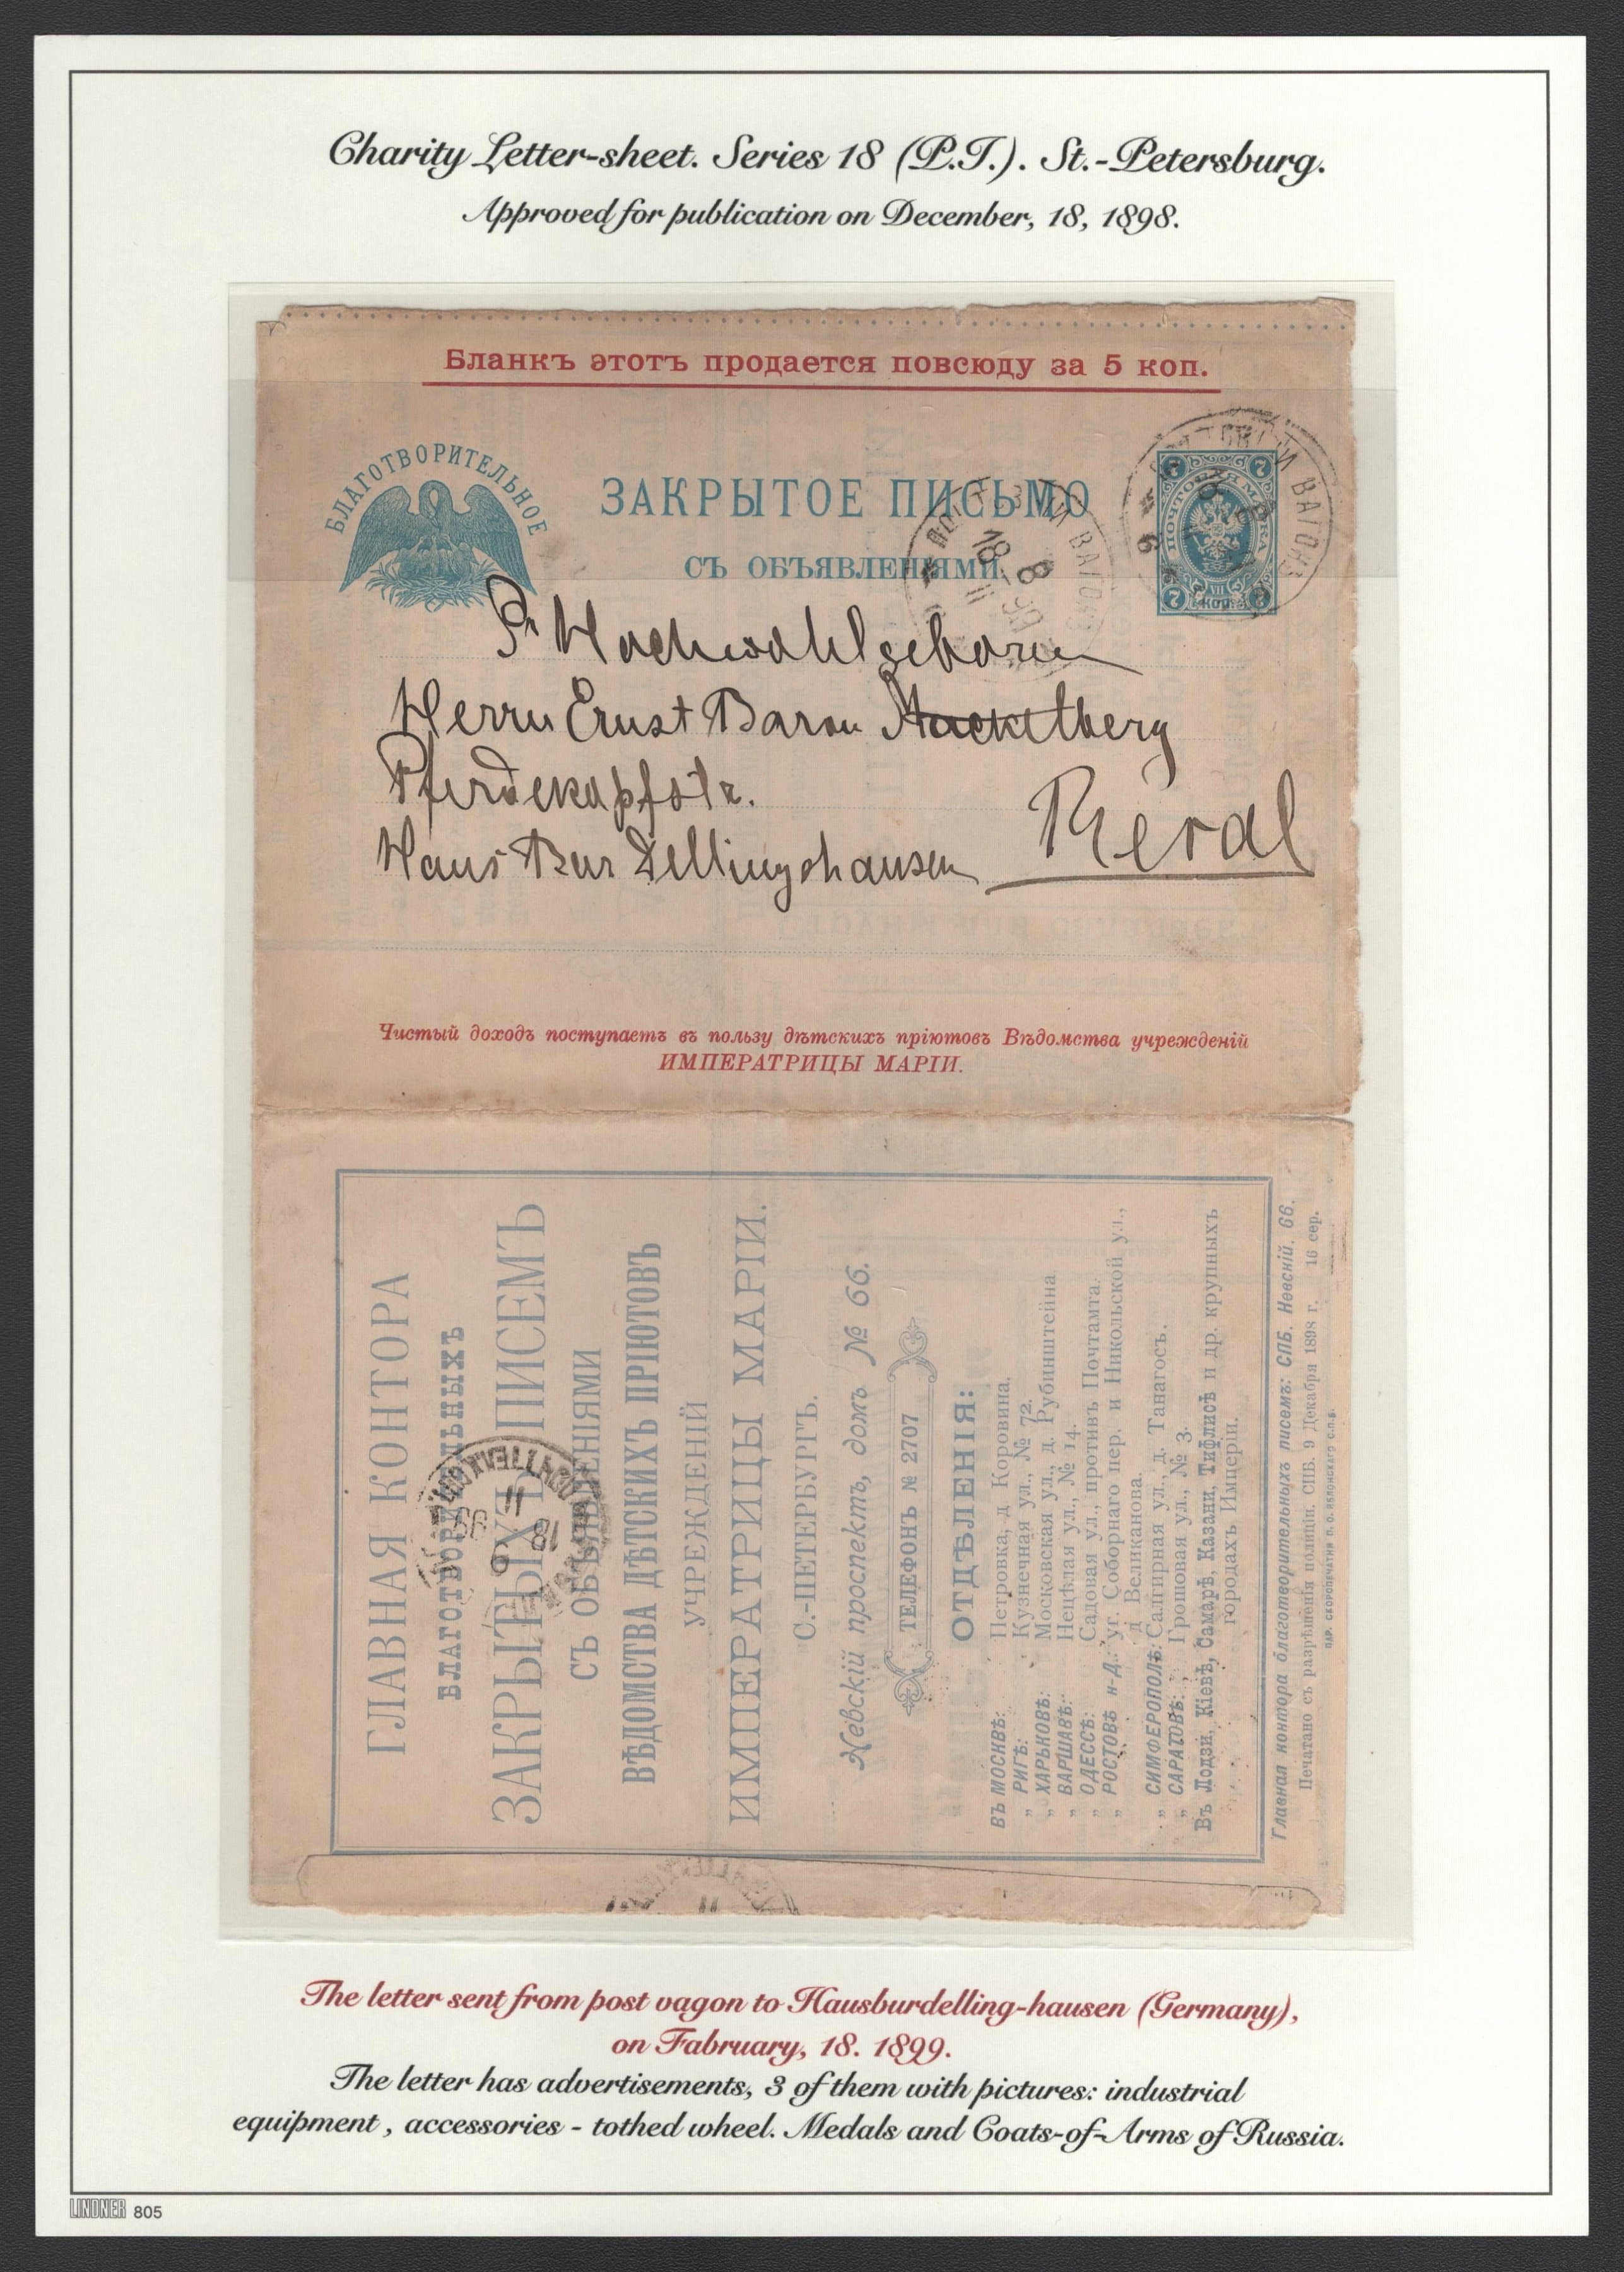 Charity Letter-sheet. Series 18 (P.T.). St.-Petersburg.
Approved for publication on December, 18, 1898.
Бланкъ этотъ продается повсюду за 5 коп.
БЛАГОТВОРИТЕЛЬНОЕ
ЗАКРЫТОЕ ПИСЬМО
СЪ ОБЪЯВЛЕНІЯМИ
ПОЧТОВАЯ МАРКА
7 7
VII
7 коп. 7
ВАГОНЪ
18
Hochwohlgeboren
Herrn Ernst Baron Stackelberg
Pferdekopfstr.
Haus Bar Dellingshausen Reval
Чистый доходъ поступаетъ въ пользу дѣтскихъ пріютовъ Вѣдомства учрежденій
ИМПЕРАТРИЦЫ МАРІИ.
ГЛАВНАЯ КОНТОРА
БЛАГОТВОРИТЕЛЬНЫХЪ
ЗАКРЫТЫХЪ ПИСЕМЪ
СЪ ОБЪЯВЛЕНІЯМИ
ВѢДОМСТВА ДѢТСКИХЪ ПРІЮТОВЪ
УЧРЕЖДЕНІЙ
ИМПЕРАТРИЦЫ МАРІИ.
С.-ПЕТЕРБУРГЪ.
Невскій проспектъ, домъ № 66.
ТЕЛЕФОНЪ № 2707
ОТДѢЛЕНІЯ:
ВЪ МОСКВѢ: Петровка, д. Коровина.
„ РИГѢ: Кузнечная ул., № 72.
„ ХАРЬКОВѢ: Московская ул., д. Рубинштейна
„ ВАРШАВѢ: Нецѣлая ул., № 14.
„ ОДЕССѢ: Садовая ул., противъ Почтамта.
„ РОСТОВѢ н-Д.: уг. Соборнаго пер. и Никольской ул.,
д. Великанова.
„ СИМФЕРОПОЛѢ: Салгирная ул., д. Танагосъ.
„ САРАТОВѢ: Грошовая ул., № 3.
Въ Лодзи, Кіевѣ, Самарѣ, Казани, Тифлисѣ и др. крупныхъ
городахъ Имперіи.
Главная контора благотворительныхъ писемъ: СПБ. Невскій, 66.
Печатано съ разрѣшенія полиціи. СПБ. 9 Декабря 1898 г. 16 сер.
ПАР. СКОРОПЕЧАТНЯ П. О. ЯБЛОНСКАГО С.П.Б.
The letter sent from post vagon to Hausburdelling-hausen (Germany),
on Fabruary, 18. 1899.
The letter has advertisements, 3 of them with pictures: industrial
equipment , accessories - tothed wheel. Medals and Coats-of-Arms of Russia.
LINDNER 805